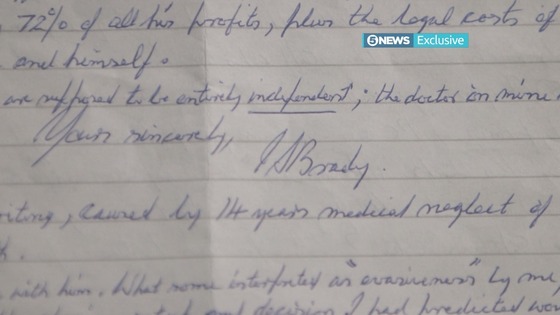 72% of all his profits, plus the legal costs of
5 NEWS Exclusive
and himself.
are supposed to be entirely independent; the doctor on mine
Yours sincerely,
I S Brady.
riting, caused by 14 years medical neglect of
with him. What some interpreted as "evasiveness" by me,
and decision I had predicted